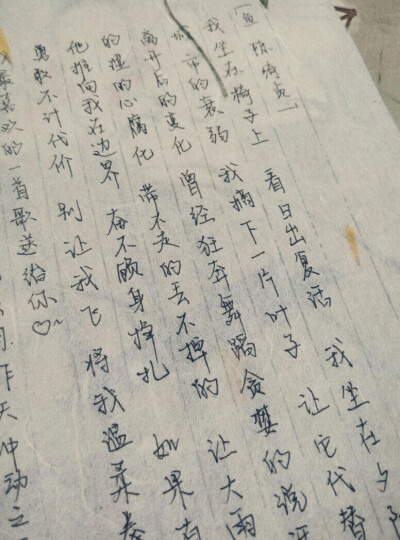 [鱼 陈绮贞]
我坐在椅子上 看日出复活 我坐在夕
城市的衰弱 我摘下一片叶子 让它代替
离开后的变化 曾经狂奔舞蹈贪婪的说
的湿的心腐化 带不走的丢不掉的 让大雨
他推向我在边界 奋不顾身挣扎 如果有
勇敢不计代价 别让我飞 将我温柔豢
最喜欢的一首歌送给你♡~
昨天冲动之